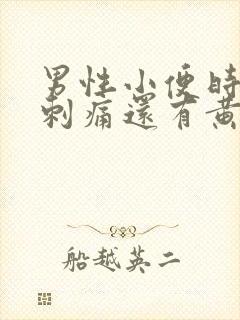 男性小便時
刺痛還有黃
船越英二